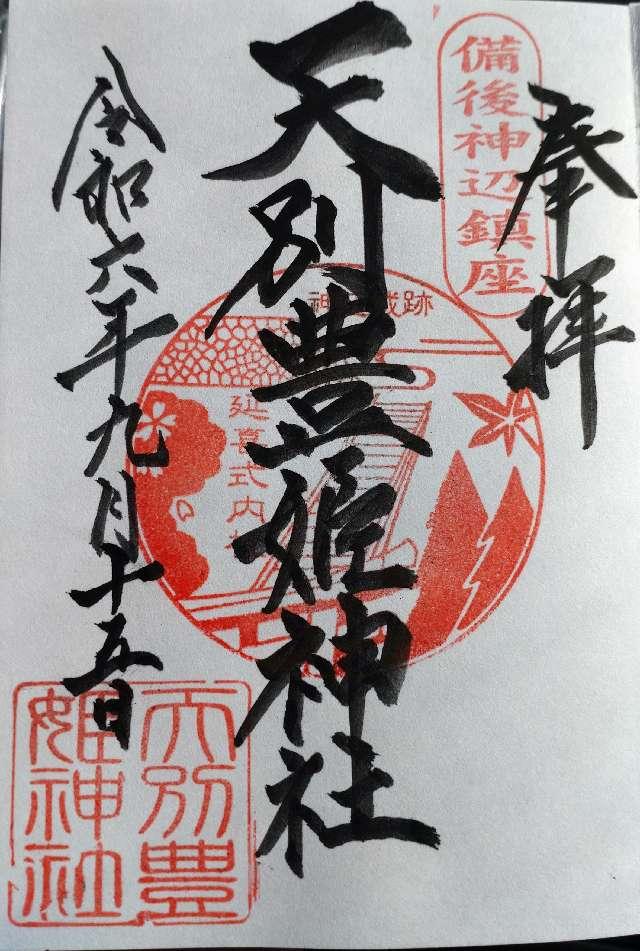 奉拝
備後神辺鎮座
天別豊姫神社
延喜式内社
令和六年九月十五日
天別豊
姫神社